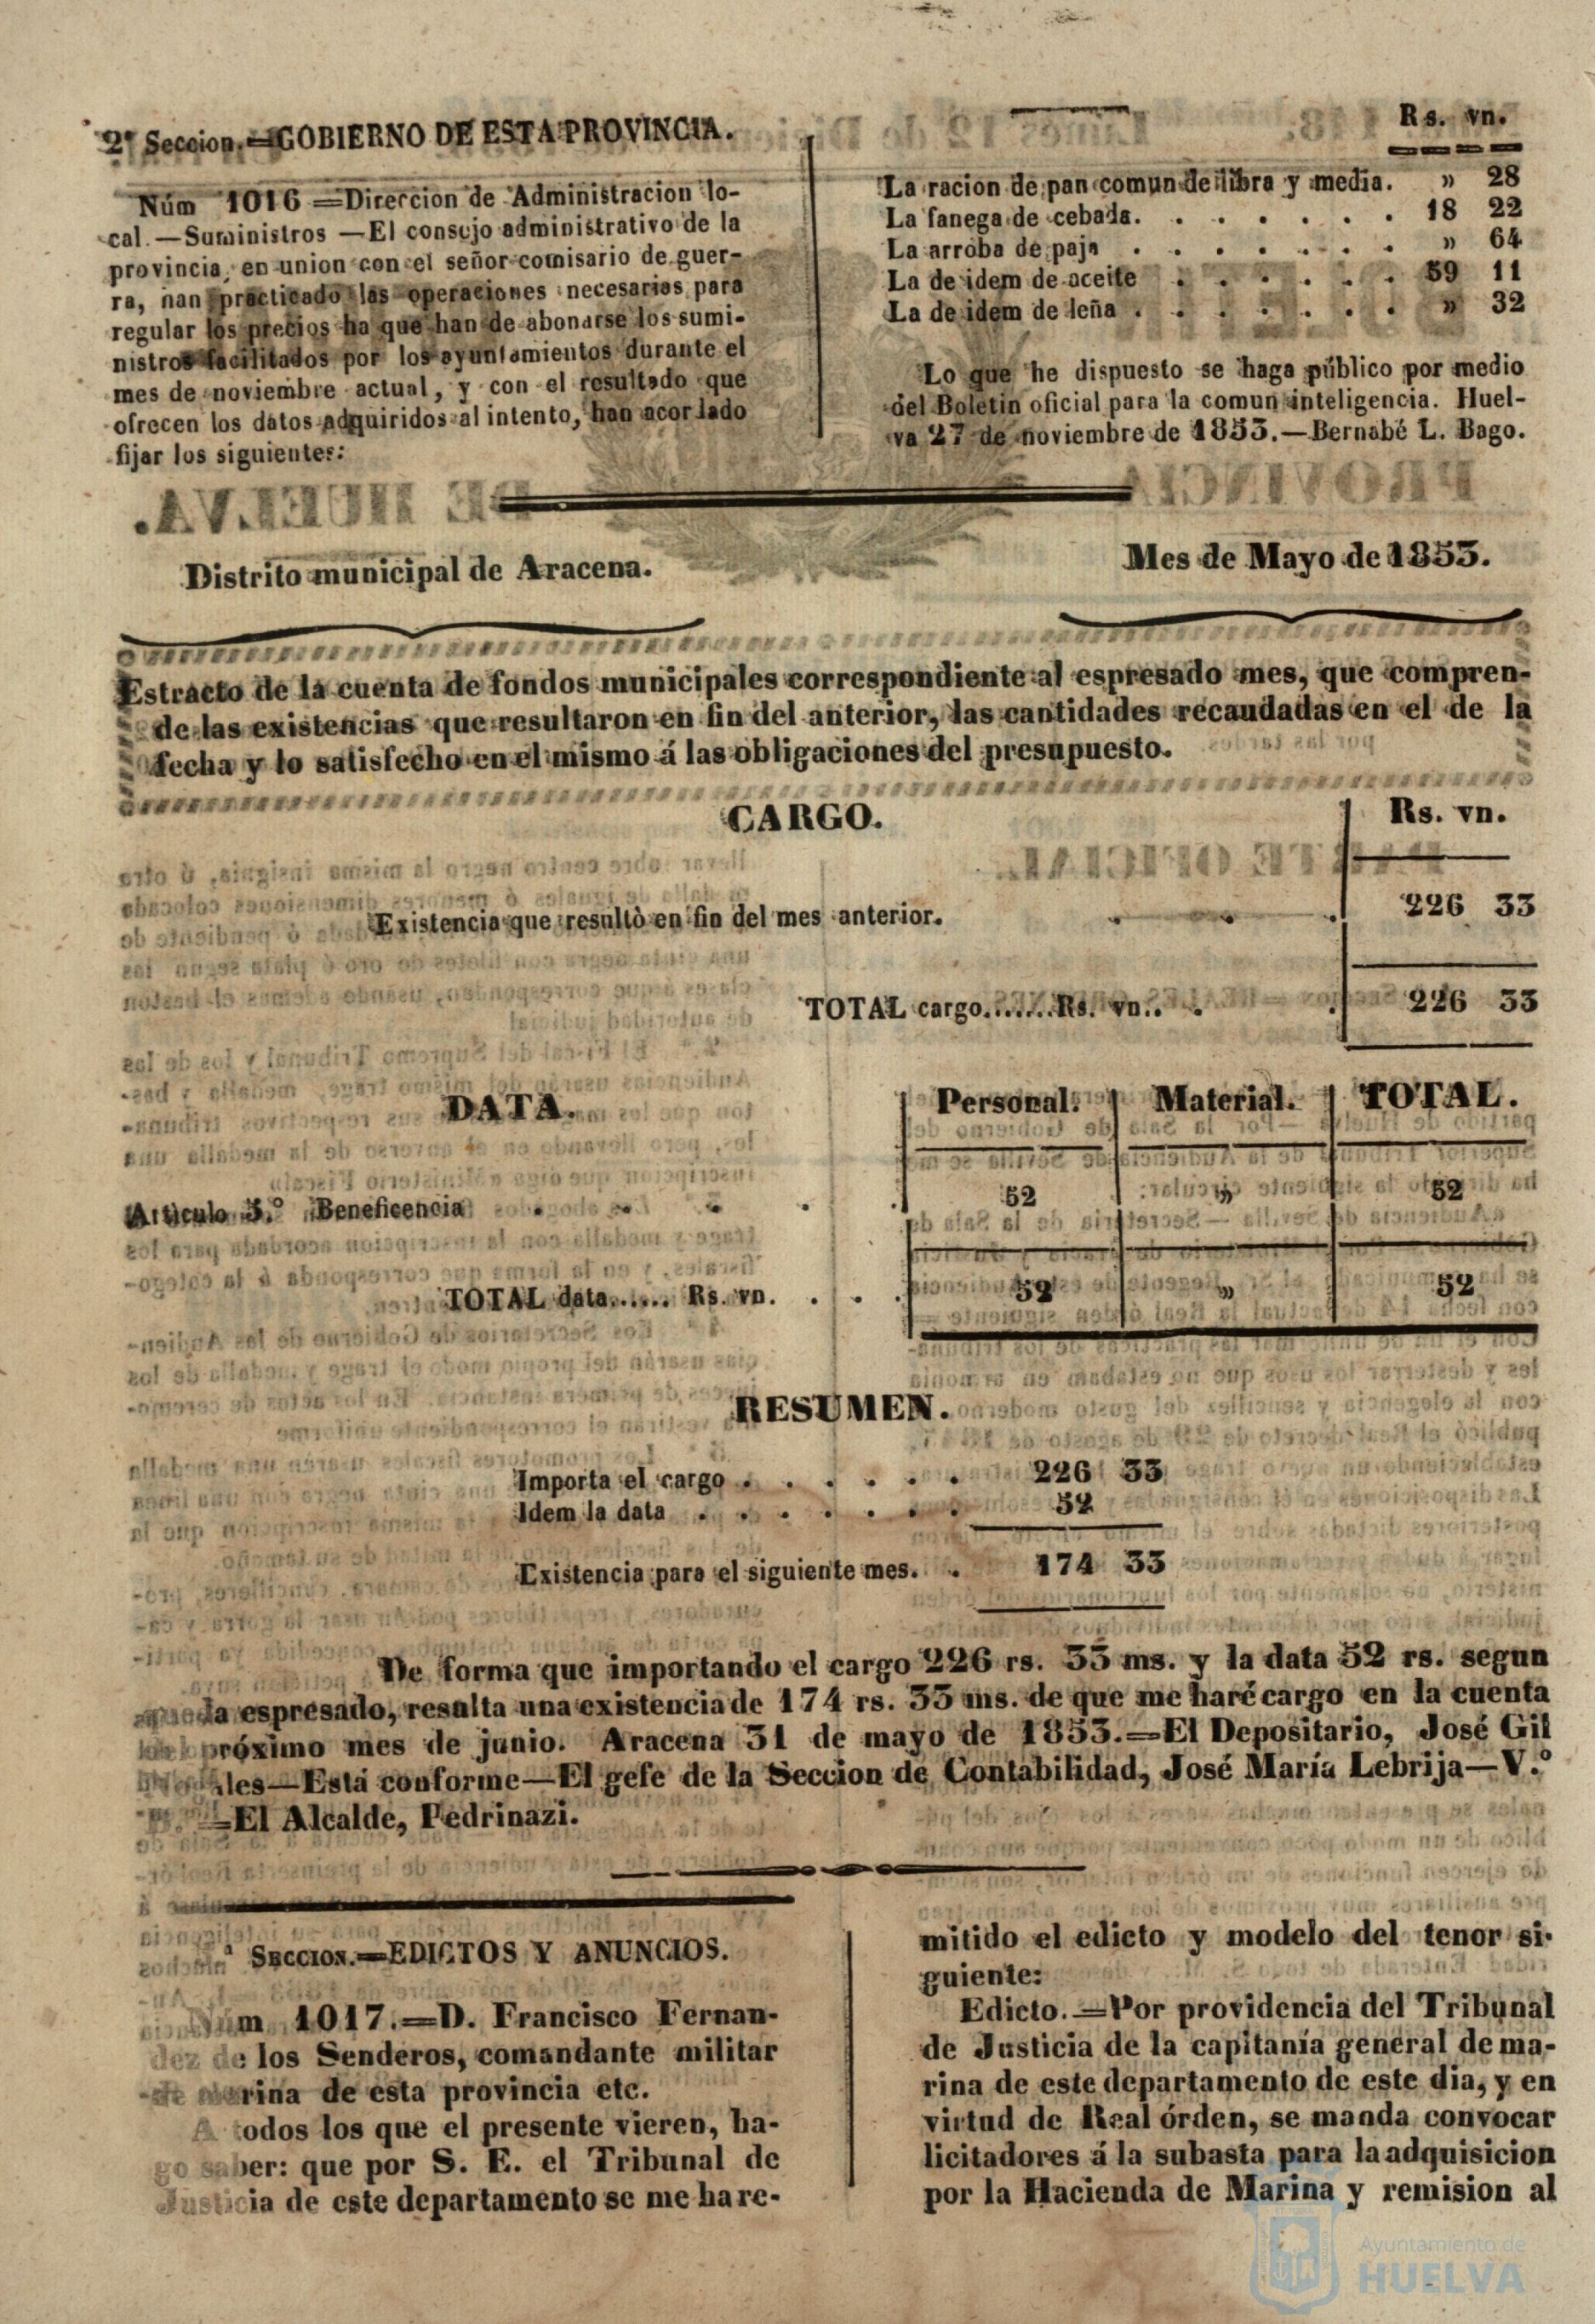 2ª Seccion.=GOBIERNO DE ESTA PROVINCIA.
Núm 1016 =Direccion de Administracion lo-
cal.—Suministros —El consejo administrativo de la
provincia, en union con el señor comisario de guer-
ra, han practicado las operaciones necesarias para
regular los precios ha que han de abonarse los sumi-
nistros facilitados por los ayuntamientos durante el
mes de noviembre actual, y con el resultado que
ofrecen los datos adquiridos al intento, han acordado
fijar los siguientes:
Rs. vn.
La racion de pan comun de libra y media. » 28
La fanega de cebada. . . . . . . . 18 22
La arroba de paja . . . . . . . » 64
La de idem de aceite . . . . . . 59 11
La de idem de leña . . . . . . . » 32
Lo que he dispuesto se haga público por medio
del Boletin oficial para la comun inteligencia. Huel-
va 27 de noviembre de 1853.—Bernabé L. Bago.
Distrito municipal de Aracena.
Mes de Mayo de 1853.
Estracto de la cuenta de fondos municipales correspondiente al espresado mes, que compren-
de las existencias que resultaron en fin del anterior, las cantidades recaudadas en el de la
fecha y lo satisfecho en el mismo á las obligaciones del presupuesto.
CARGO.
Rs. vn.
Existencia que resultò en fin del mes anterior. . . . 226 33
TOTAL cargo.......Rs. vn.. . . 226 33
DATA.
Personal. Material. TOTAL.
Articulo 5.º Beneficencia . . . . . 52 » 52
TOTAL data...... Rs. vn. . . . 52 » 52
RESUMEN.
Importa el cargo . . . . . . 226 33
Idem la data . . . . . . . 52
Existencia para el siguiente mes. . 174 33
De forma que importando el cargo 226 rs. 33 ms. y la data 52 rs. segun
queda espresado, resulta una existencia de 174 rs. 33 ms. de que me haré cargo en la cuenta
próximo mes de junio. Aracena 31 de mayo de 1853.=El Depositario, José Gil
les—Está conforme—El gefe de la Seccion de Contabilidad, José María Lebrija—V.º
=El Alcalde, Pedrinazi.
ª SECCION.=EDICTOS Y ANUNCIOS.
Núm 1017.=D. Francisco Fernan-
dez de los Senderos, comandante militar
de marina de esta provincia etc.
A todos los que el presente vieren, ha-
go saber: que por S. E. el Tribunal de
Justicia de este departamento se me ha re-
mitido el edicto y modelo del tenor si-
guiente:
Edicto.=Por providencia del Tribunal
de Justicia de la capitanía general de ma-
rina de este departamento de este dia, y en
virtud de Real órden, se manda convocar
licitadores á la subasta para la adquisicion
por la Hacienda de Marina y remision al
Ayuntamiento de
HUELVA